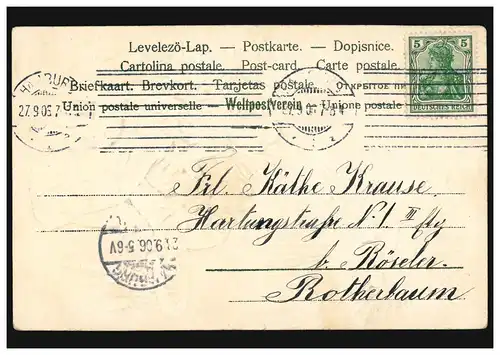 Levelezö-Lap. — Postkarte. — Dopisnice.
Cartolina postale. Post-card. — Carte postale.
Briefkaart. Brevkort. — Tarjetas postale. ОТКРЫТОЕ
Union postale universelle — Weltpostverein — Unione postale
5 5
DEUTSCHES REICH
HAMBURG
27.9.06.
Frl. Käthe Krause
Hartungstraße N. 1 III
b. Röseler
Rotherbaum.
9.06.5-6V